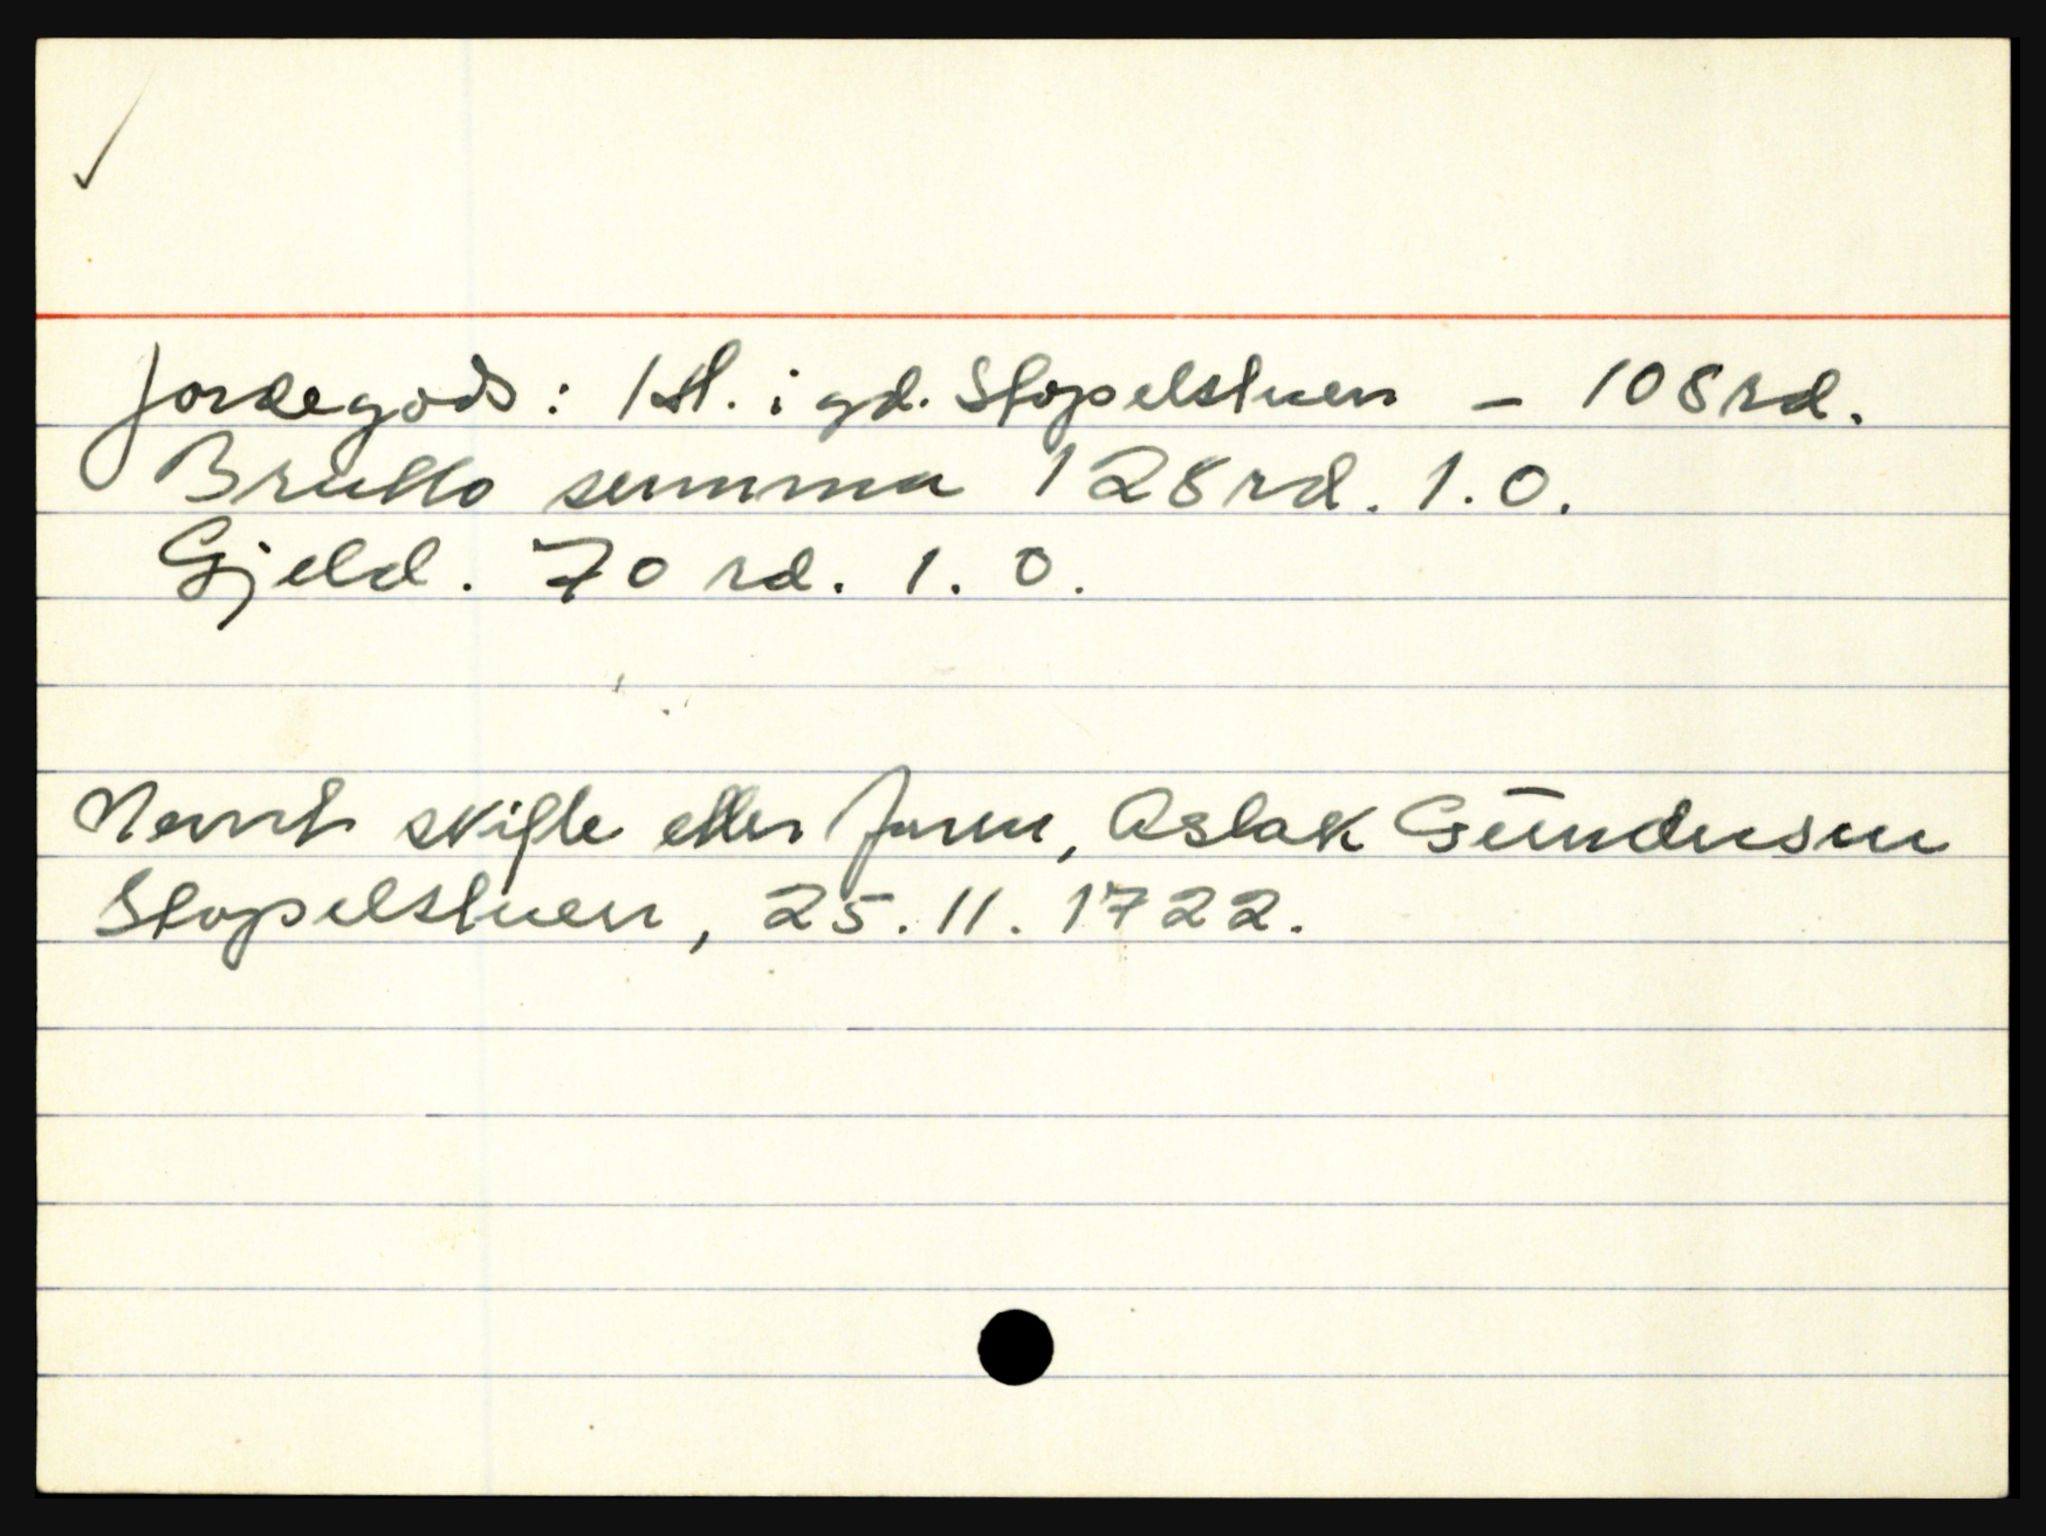 Jordegods: 1 h. i gd. Stopelstuen - 108 rd.
Brutto summa 128 rd. 1. 0.
Gjeld. 70 rd. 1. 0.
Nevnt skifte etter faren, Aslak Gundersen
Stopelstuen, 25. 11. 1722.